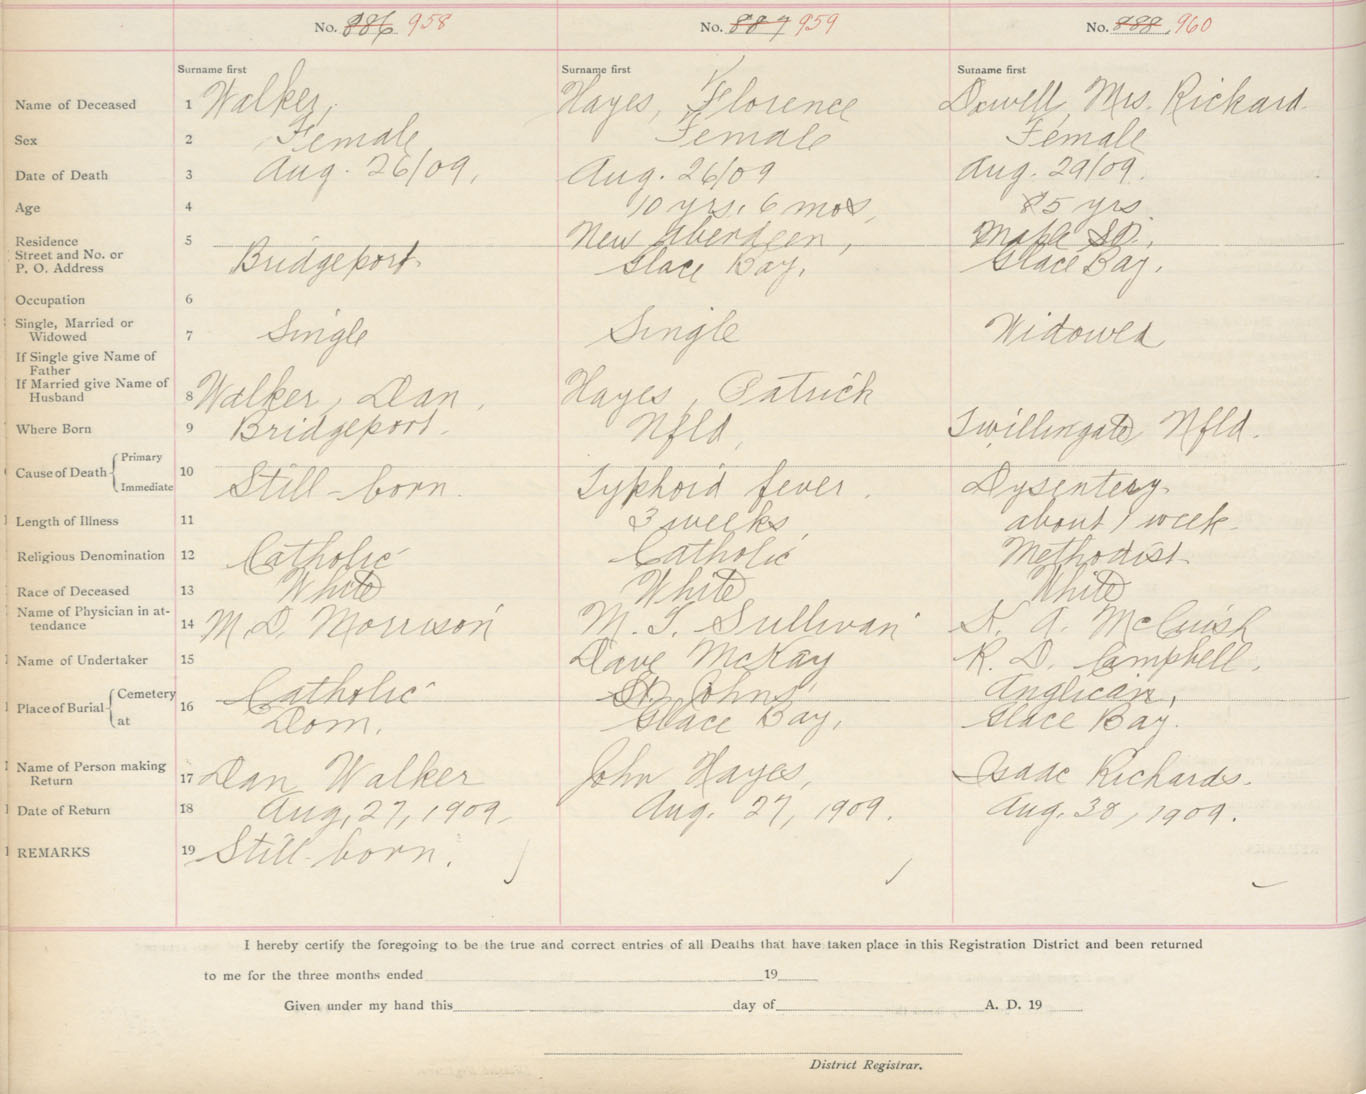 No. 886 958 No. 887 959 No. 888 960
Surname first Surname first Surname first
Name of Deceased 1 Walker, Hayes, Florence Dowell, Mrs. Rickard
Sex 2 Female Female Female
Date of Death 3 Aug. 26/09. Aug. 26/09 Aug. 29/09.
Age 4 10 yrs. 6 mos, 85 yrs
Residence 5 New Aberdeen, St.,
Street and No. or
P. O. Address Bridgeport. Glace Bay. Glace Bay.
Occupation 6
Single, Married or
Widowed 7 Single Single Widowed
If Single give Name of
Father
If Married give Name of
Husband 8 Walker, Dan, Hayes, Patrick
Where Born 9 Bridgeport. Nfld, Twillingate Nfld.
Cause of Death { Primary
Immediate 10 Still-born. Typhoid fever. Dysentery
Length of Illness 11 3 weeks about 1 week
Religious Denomination 12 Catholic Catholic Methodist
Race of Deceased 13 White White White
Name of Physician in at-
tendance 14 M. D. Morrison M. T. Sullivan K. A. McCuish
Name of Undertaker 15 Dave McKay R. D. Campbell.
Place of Burial { Cemetery 16 Catholic St. Johns Anglican,
at Dom. Glace Bay, Glace Bay.
Name of Person making
Return 17 Dan Walker John Hayes, Isaac Richards.
Date of Return 18 Aug, 27, 1909. Aug. 27, 1909. Aug. 30, 1909.
REMARKS 19 Still-born.
I hereby certify the foregoing to be the true and correct entries of all Deaths that have taken place in this Registration District and been returned
to me for the three months ended 19
Given under my hand this day of A. D. 19
District Registrar.